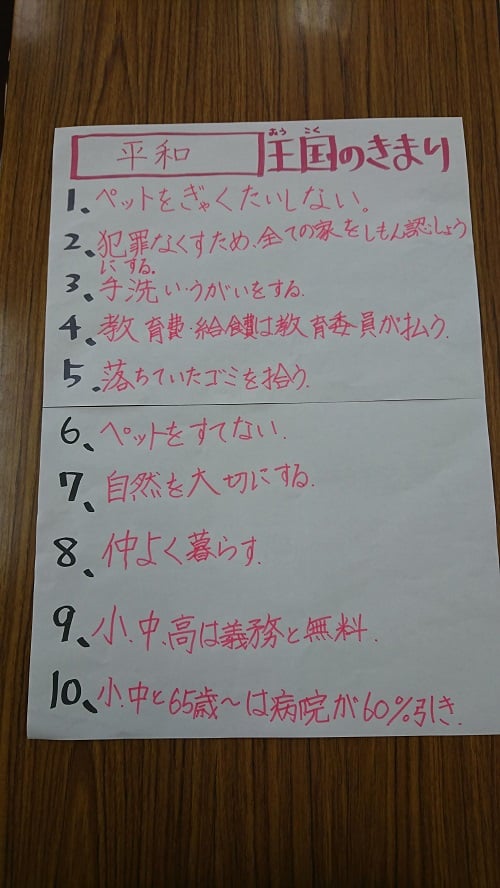 おう こく
平和 王国のきまり
1、ペットをぎゃくたいしない。
2、犯罪なくすため、全ての家をしもん認しょう
にする。
3、手洗い・うがいをする。
4、教育費・給食費は教育委員が払う。
5、落ちていたゴミを拾う。
6、ペットをすてない。
7、自然を大切にする。
8、仲よく暮らす。
9、小、中、高は義務と無料。
10、小、中と65歳〜は病院が60%引き。